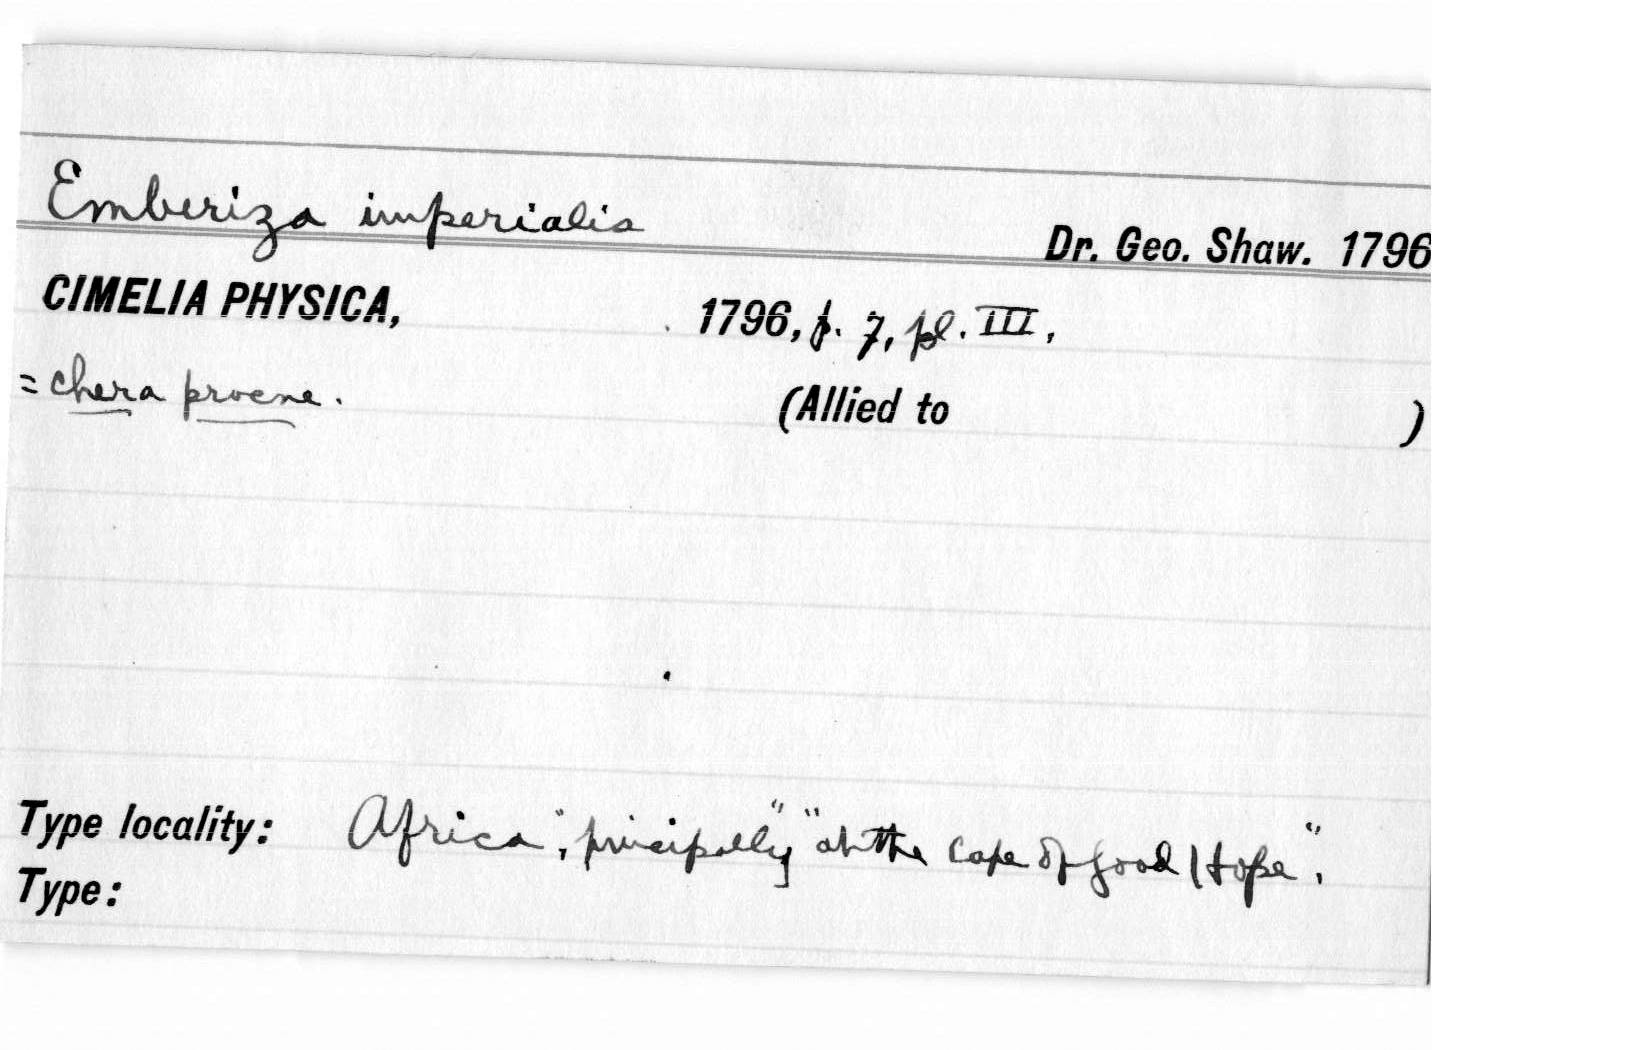 Emberiza imperialis
Dr. Geo. Shaw. 1796
CIMELIA PHYSICA, 1796, p. 7, pl. III,
= chera procne.
(Allied to )
Type locality: Africa", principally" "at the Cape of Good Hope".
Type: